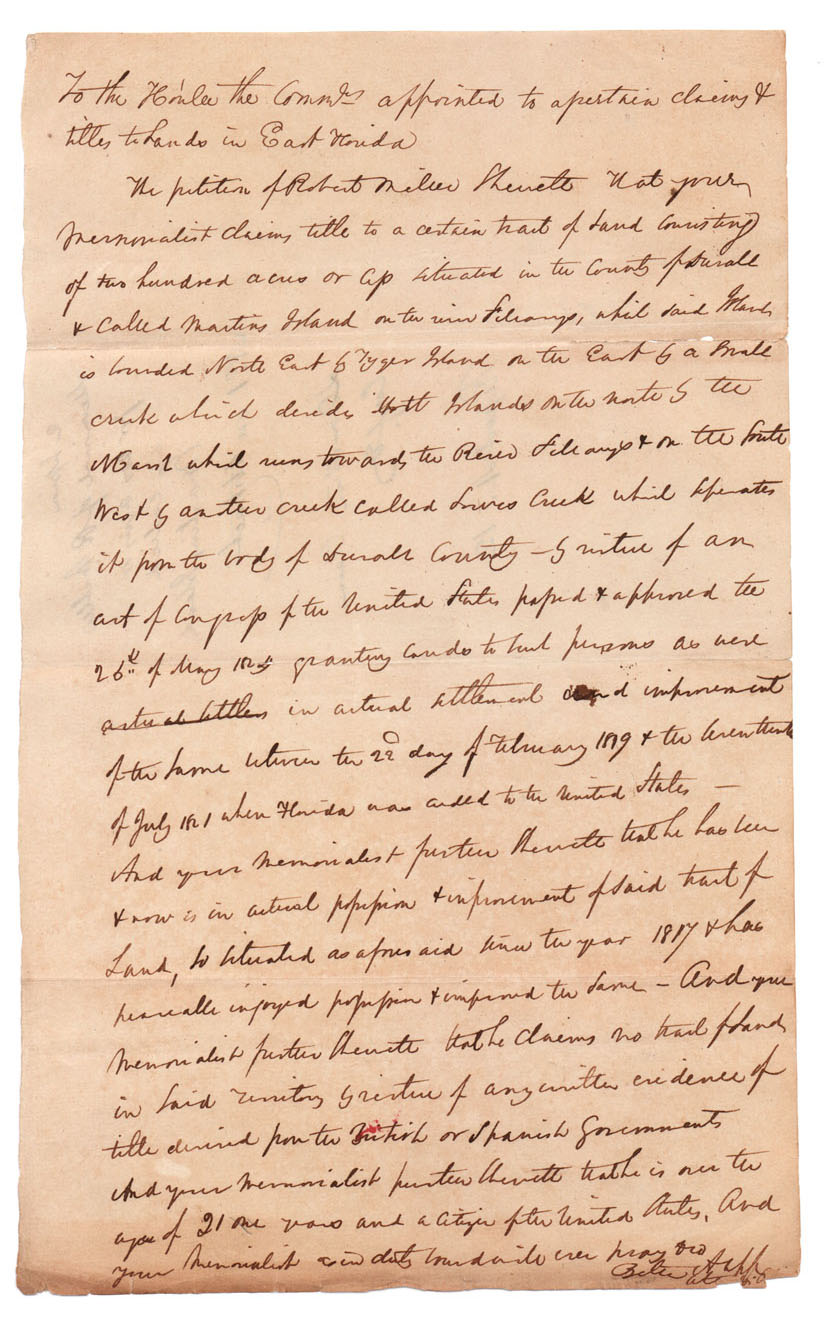 To the Honle the Commrs appointed to assertain claims &
titles to Lands in East Florida
The petition of Robert Sheweth that your
Memorialist claims title to a certain tract of Land Consisting
of two hundred acres or less situated in the County of Duvall
& Called Martins Island on the river which said Island
is bounded North East by Tyger Island on the East by a Small
creek which devides both Islands on the north by the
Marsh which runs towards the River & on the South
West by another creek called Creek which seperates
it from the body of Duvall County – by virtue of an
act of Congress of the United States passed & approved the
of May granting Lands to such persons as were
actual Settlers in actual settlement and improvement
of the same between the 22d day of February 1819 & the seventeenth
of July 1821 when Florida was ceeded to the United States —
And your Memorialist further Sheweth that he has been
& now is in actual possession & improvement of said tract of
Land, so situated as aforesaid since the year 1817 & has
peaceable injoyed possession & improved the same – And your
Memorialist further Sheweth that he claims no tract of Land
in said Territory by virtue of any written evidence of
title derived from the British or Spanish Governments
And your Memorialist further Sheweth that he is over the
age of 21 one years and a Citizen of the United States, And
your Memorialist as in duty bound will ever pray &c